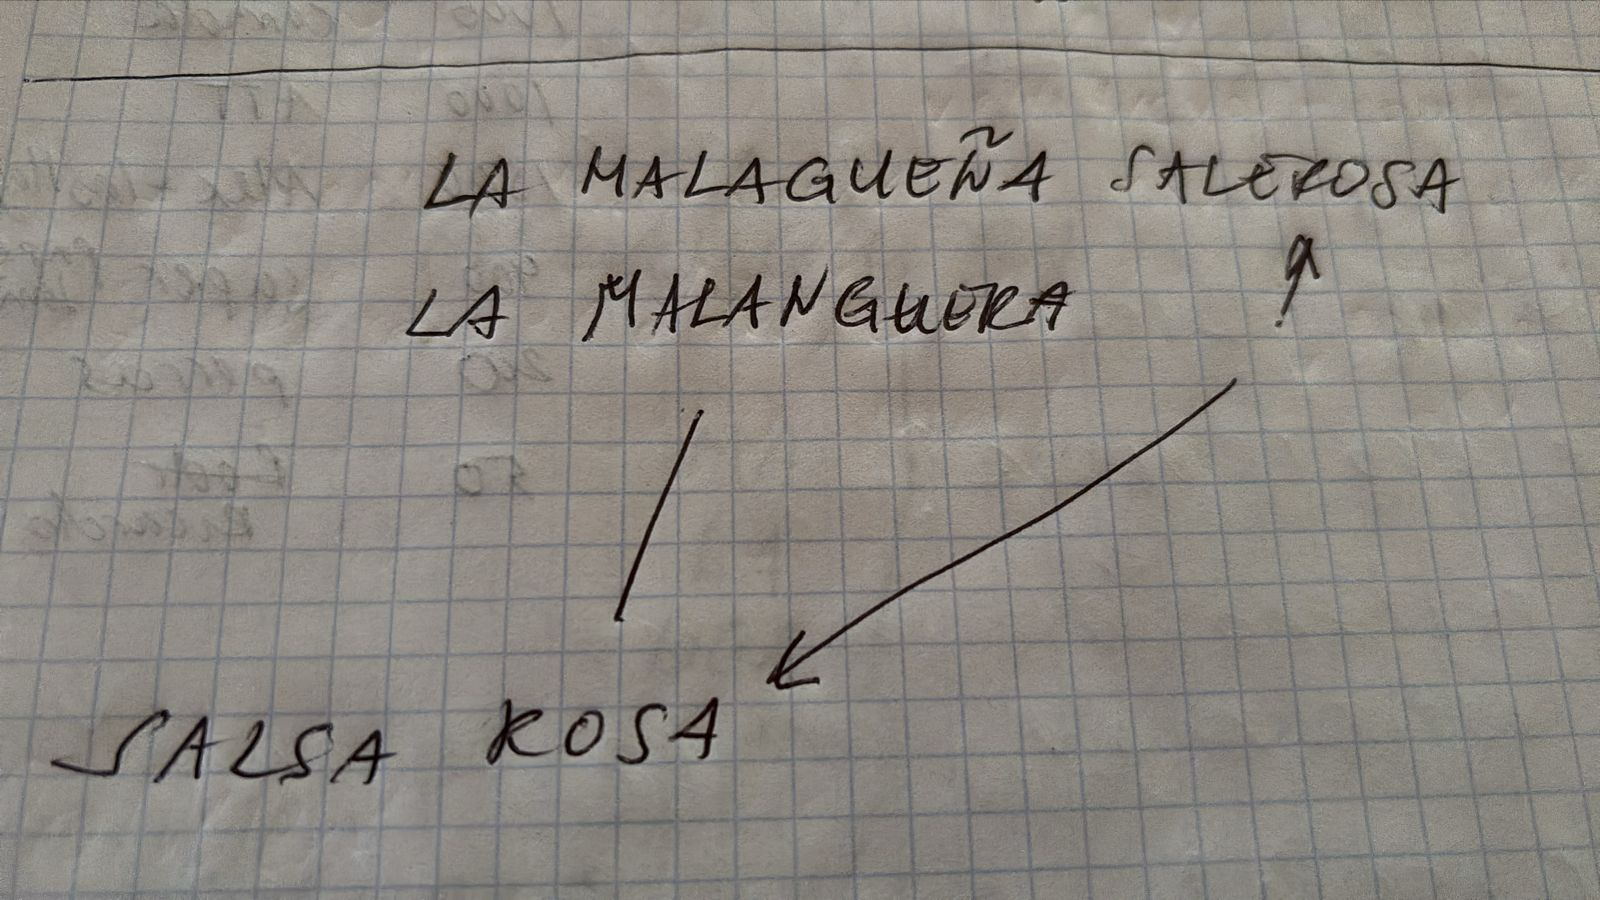 LA MALAGUEÑA SALEROSA
LA MALANGUERA
SALSA ROSA